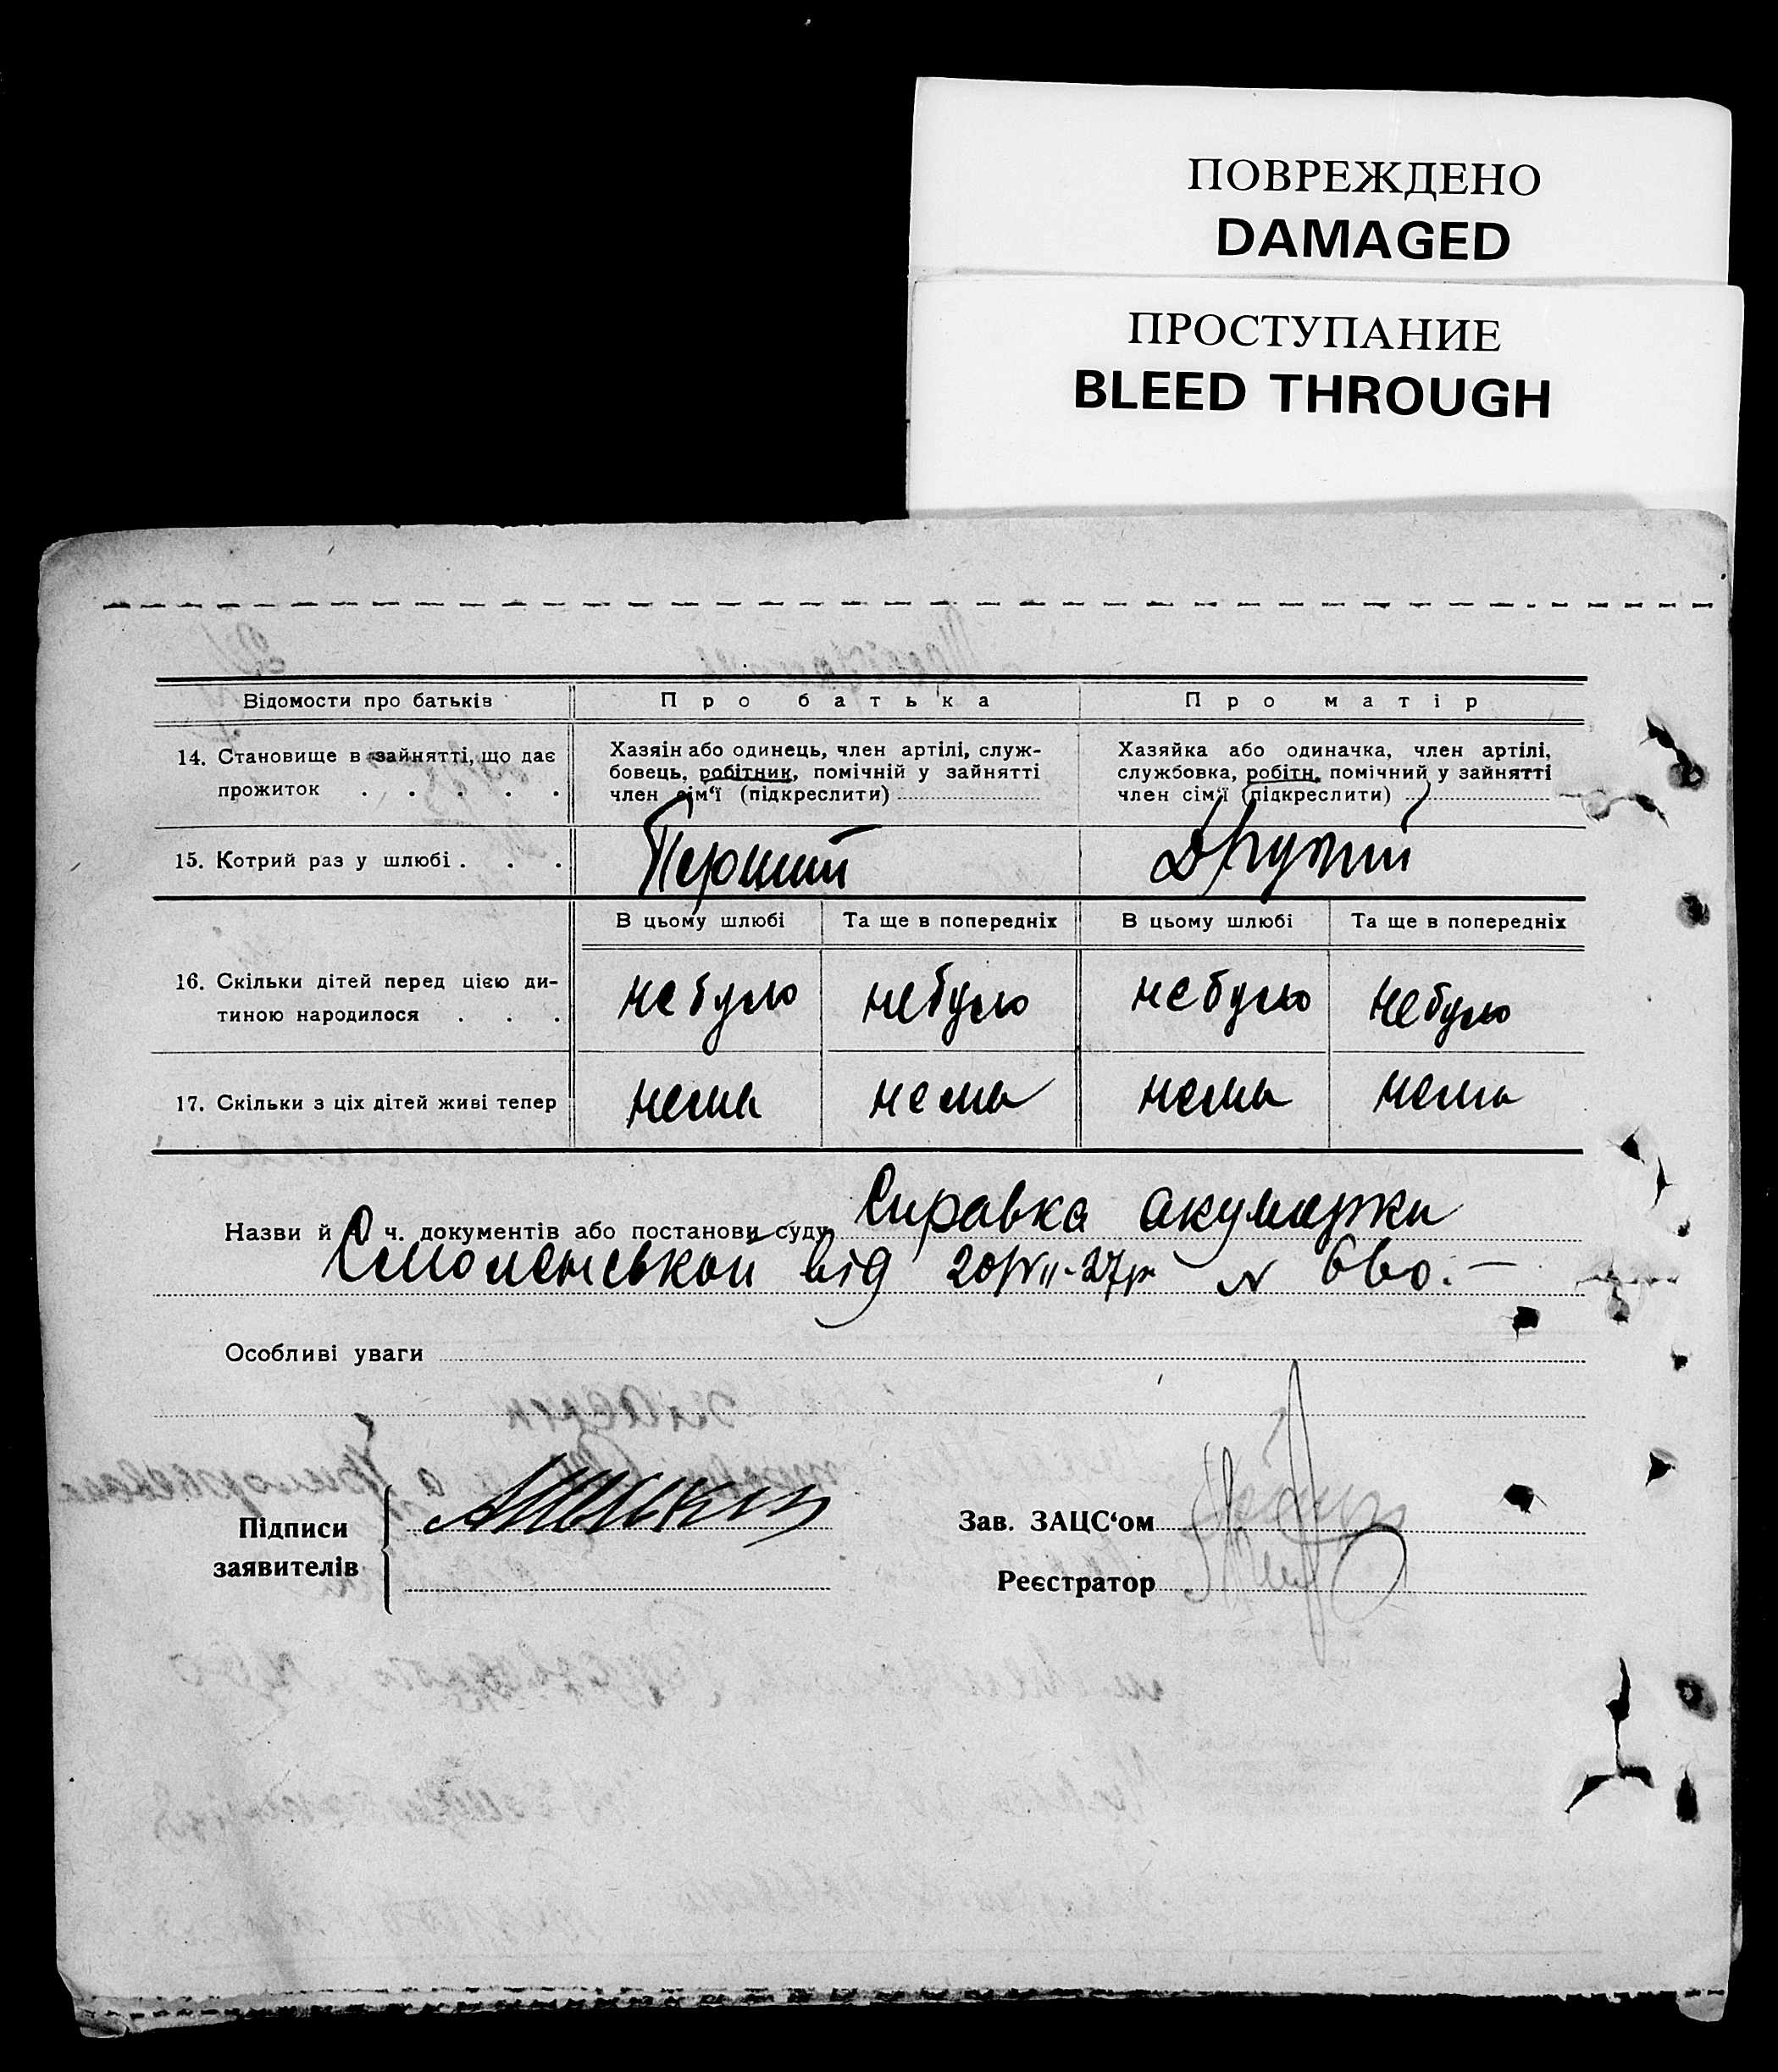 ПОВРЕЖДЕНО
DAMAGED
ПРОСТУПАНИЕ
BLEED THROUGH
Відомости про батьків
Про батька
Про матір
14. Становище в зайнятті, що дає
прожиток . . . . .
Хазяін або одинець, член артілі, служ-
бовець, робітник, помічній у зайнятті
член сім'ї (підкреслити)
Хазяйка або одиначка, член артілі,
службовка, робітн. помічний у зайнятті
член сім'ї (підкреслити)
15. Котрий раз у шлюбі . . .
Перший
Другий
В цьому шлюбі
Та ще в попередніх
В цьому шлюбі
Та ще в попередніх
16. Скільки дітей перед цією ди-
тиною народилося . . .
небуло
небуло
небуло
небуло
17. Скільки з ціх дітей живі тепер
нема
нема
нема
нема
Назви й ч. документів або постанови суду Справка акушерки
від 20/VII-27р N
Особливі уваги
Підписи
заявителів
Зав. ЗАЦС'ом
Реєстратор